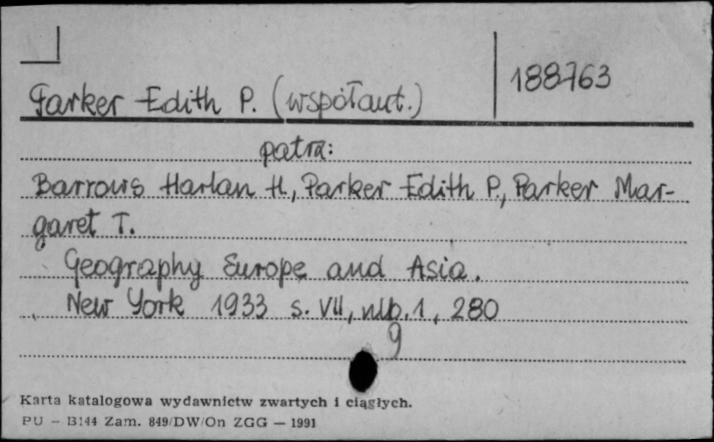 Parker Edith P. (współaut.)
188763
patrz:
Barrows Harlan H., Parker Edith P., Parker Mar-
garet T.
Geography Europe and Asia.
New York 1933 s. VII, nlb. 1, 280
9
Karta katalogowa wydawnictw zwartych i ciągłych.
PU – B144 Zam. 849/DW/On ZGG — 1991